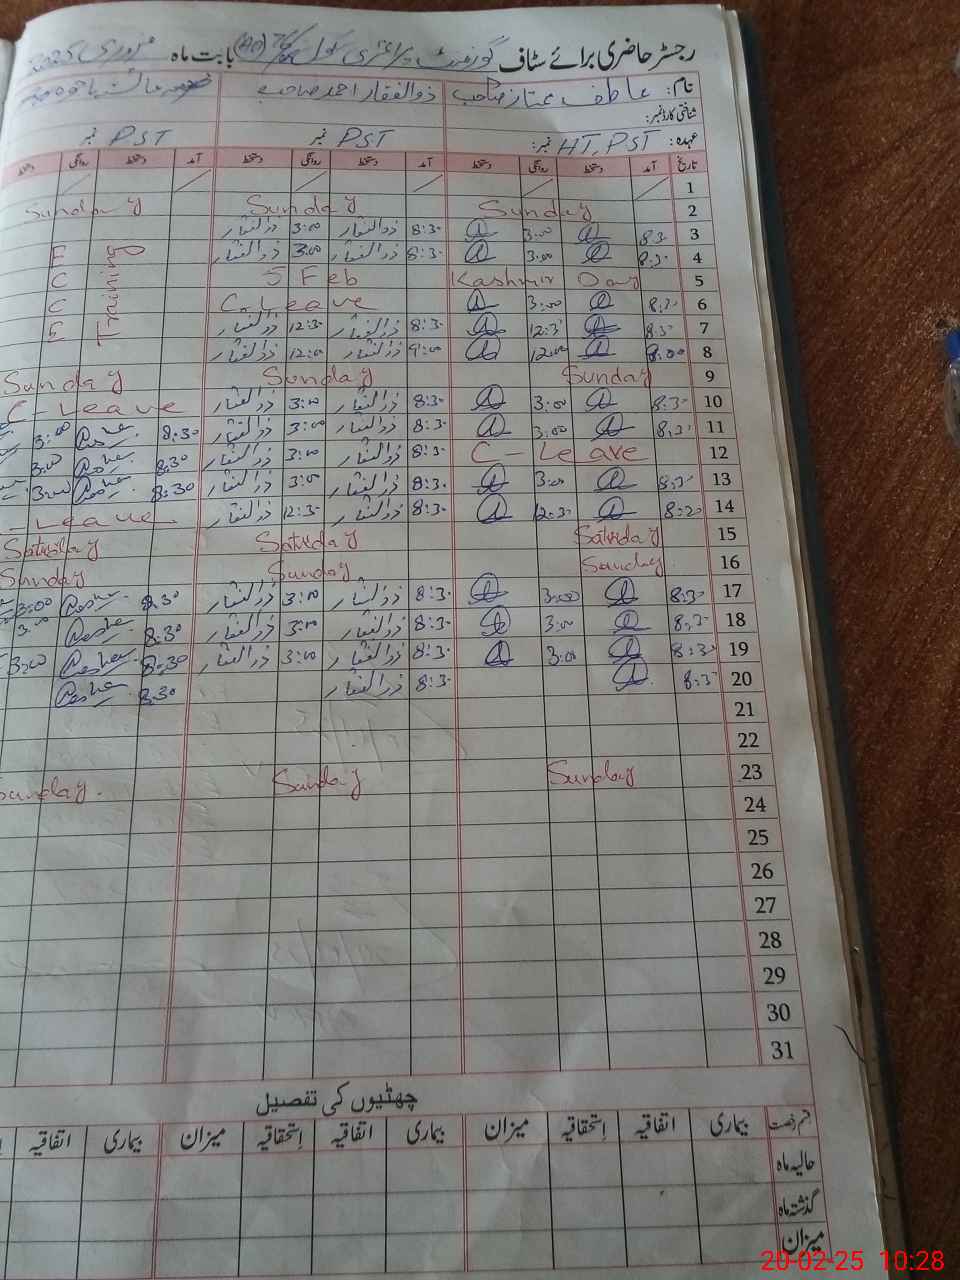 رجسٹر حاضری برائے سٹاف گورنمنٹ پرائمری سکول بابت ماہ فروری 2025
نام: عاطف ممتاز صاحب ذوالفقار احمد صاحب
شناختی کارڈ نمبر:
عہدہ: HT, PST نمبر: PST نمبر PST نمبر
تاریخ آمد دستخط روانگی دستخط آمد دستخط روانگی دستخط آمد دستخط روانگی دستخط
1
2 Sunday Sunday Sunday
3 8:30 3:00 8:30 ذوالفقار 3:00 ذوالفقار
4 8:30 3:00 8:30 ذوالفقار 3:00 ذوالفقار E Training
5 Kashmir Day 5 Feb C
6 8:30 3:00 C-Leave E
7 8:30 12:30 8:30 ذوالفقار 12:30 ذوالفقار E
8 9:00 12:00 9:00 ذوالفقار 12:00 ذوالفقار
9 Sunday Sunday Sunday
10 8:30 3:00 8:30 ذوالفقار 3:00 ذوالفقار C-Leave
11 8:30 3:00 8:30 ذوالفقار 3:00 ذوالفقار 8:30 3:00
12 C-Leave 8:30 ذوالفقار 3:00 ذوالفقار 8:30 3:00
13 8:30 3:00 8:30 ذوالفقار 3:00 ذوالفقار 8:30 3:00
14 8:30 12:30 8:30 ذوالفقار 12:30 ذوالفقار -Leave
15 Saturday Saturday Saturday
16 Sunday Sunday Sunday
17 8:30 3:00 8:30 ذوالفقار 3:00 ذوالفقار 8:30 3:00
18 8:30 3:00 8:30 ذوالفقار 3:00 ذوالفقار 8:30 3:00
19 8:30 3:00 8:30 ذوالفقار 3:00 ذوالفقار 8:30 3:00
20 8:30 8:30 ذوالفقار 8:30
21
22
23 Sunday Sunday Sunday.
24
25
26
27
28
29
30
31
چھٹیوں کی تفصیل
قسم رخصت بیماری اتفاقیہ استحقاقیہ میزان بیماری اتفاقیہ استحقاقیہ میزان بیماری اتفاقیہ
حالیہ ماہ
گذشتہ ماہ
میزان
20-02-25 10:28